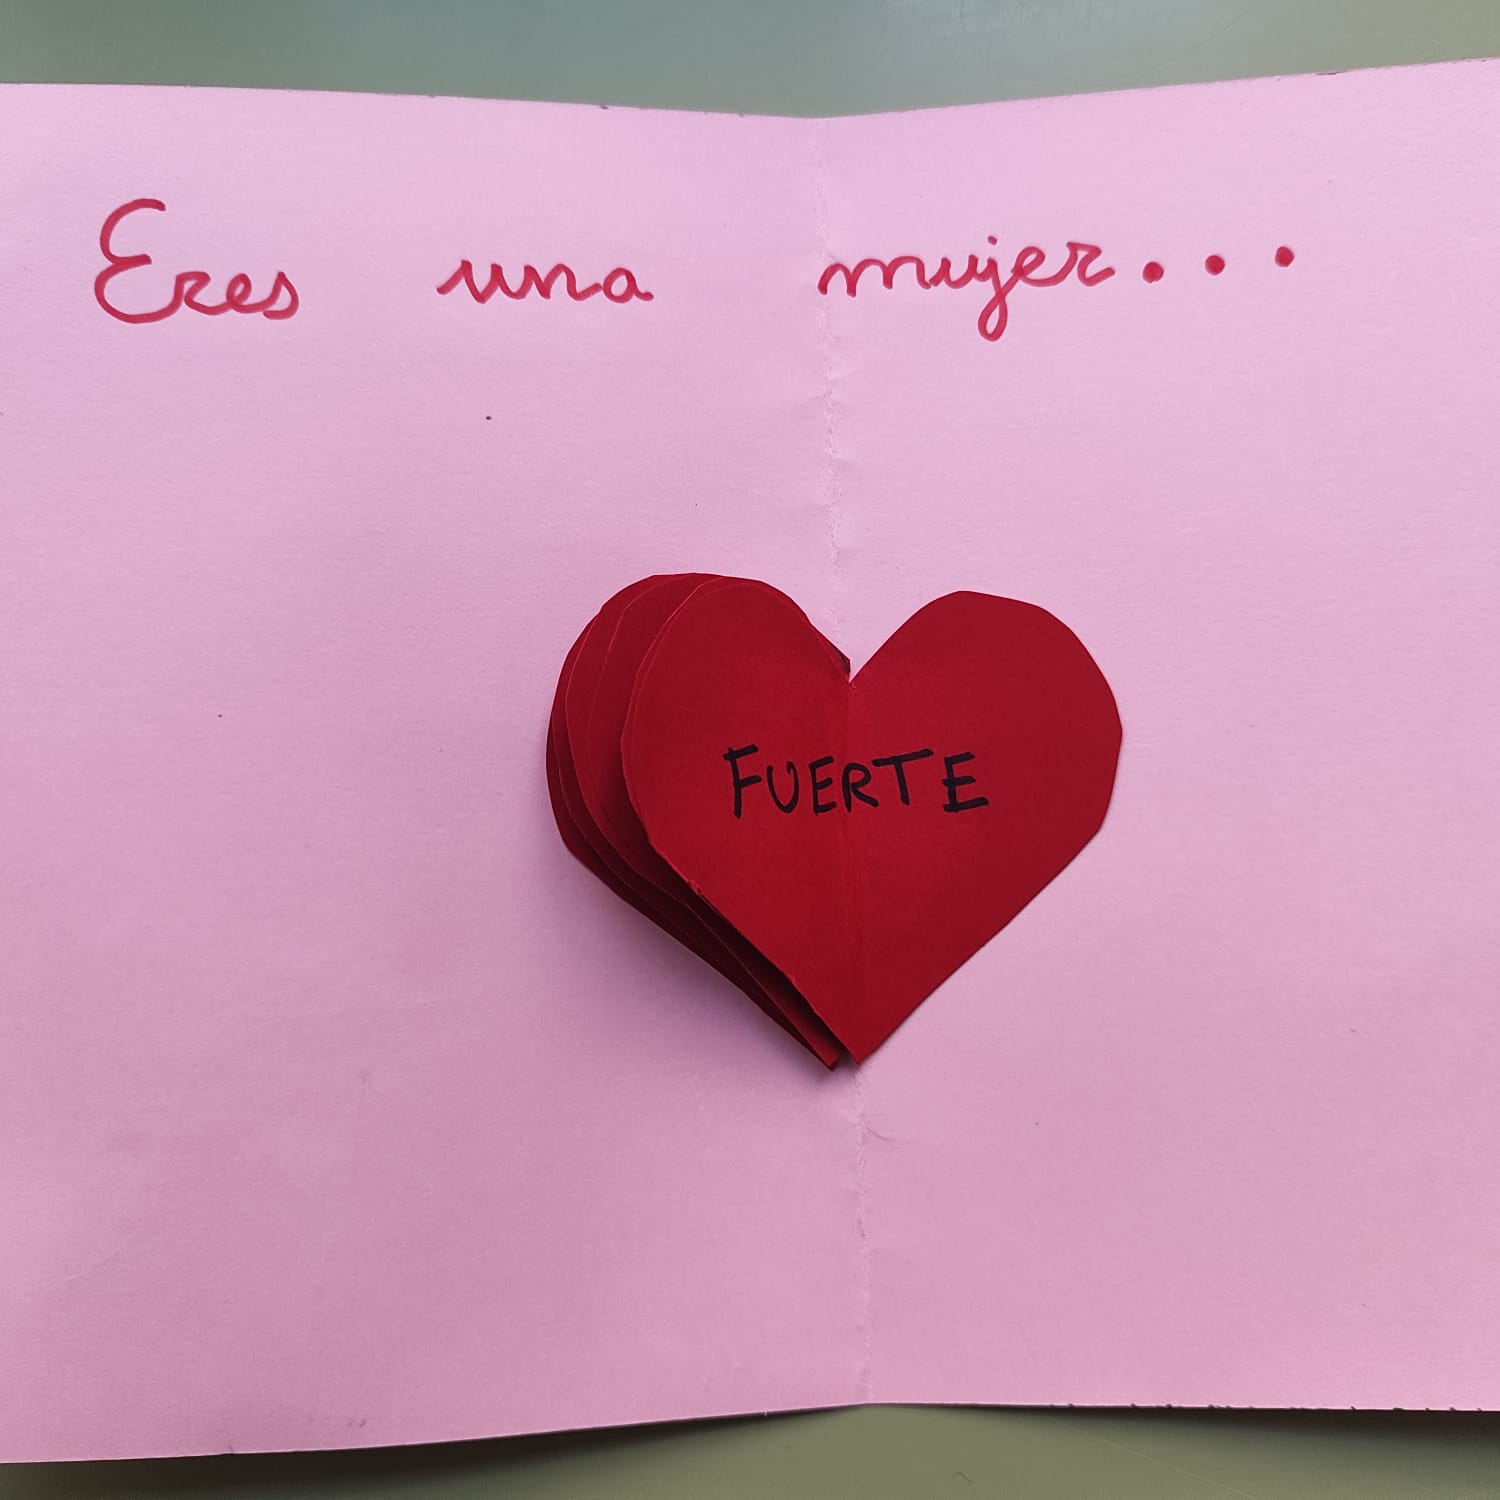 Eres una mujer...
FUERTE